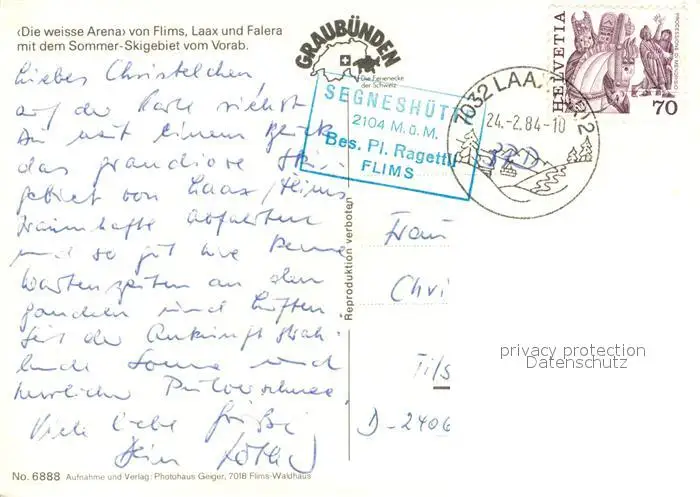 ‹Die weisse Arena› von Flims, Laax und Falera
mit dem Sommer-Skigebiet vom Vorab.
Liebes Christelchen,
auf der Karte siehst
Du mit einem Blick
das grandiose Ski-
gebiet von Laax/Flims
Traumhafte Abfahrten
und so gut wie keine
Wartezeiten an den
Gondeln und Liften.
Seit der Ankunft strah-
lende Sonne und
herrlicher Pulverschnee
Viele liebe Grüße
Dein
No. 6888 Aufnahme und Verlag: Photohaus Geiger, 7018 Flims-Waldhaus
GRAUBÜNDEN
Die Ferienecke
der Schweiz
SEGNESHÜTTE
2104 M.ü.M.
Bes. Pl. Ragettli
FLIMS
7032 LAAX GR 2
24.-2.84-10
HELVETIA
70
Reproduktion verboten
Frau
Chri
Tils
D-2406
privacy protection
Datenschutz